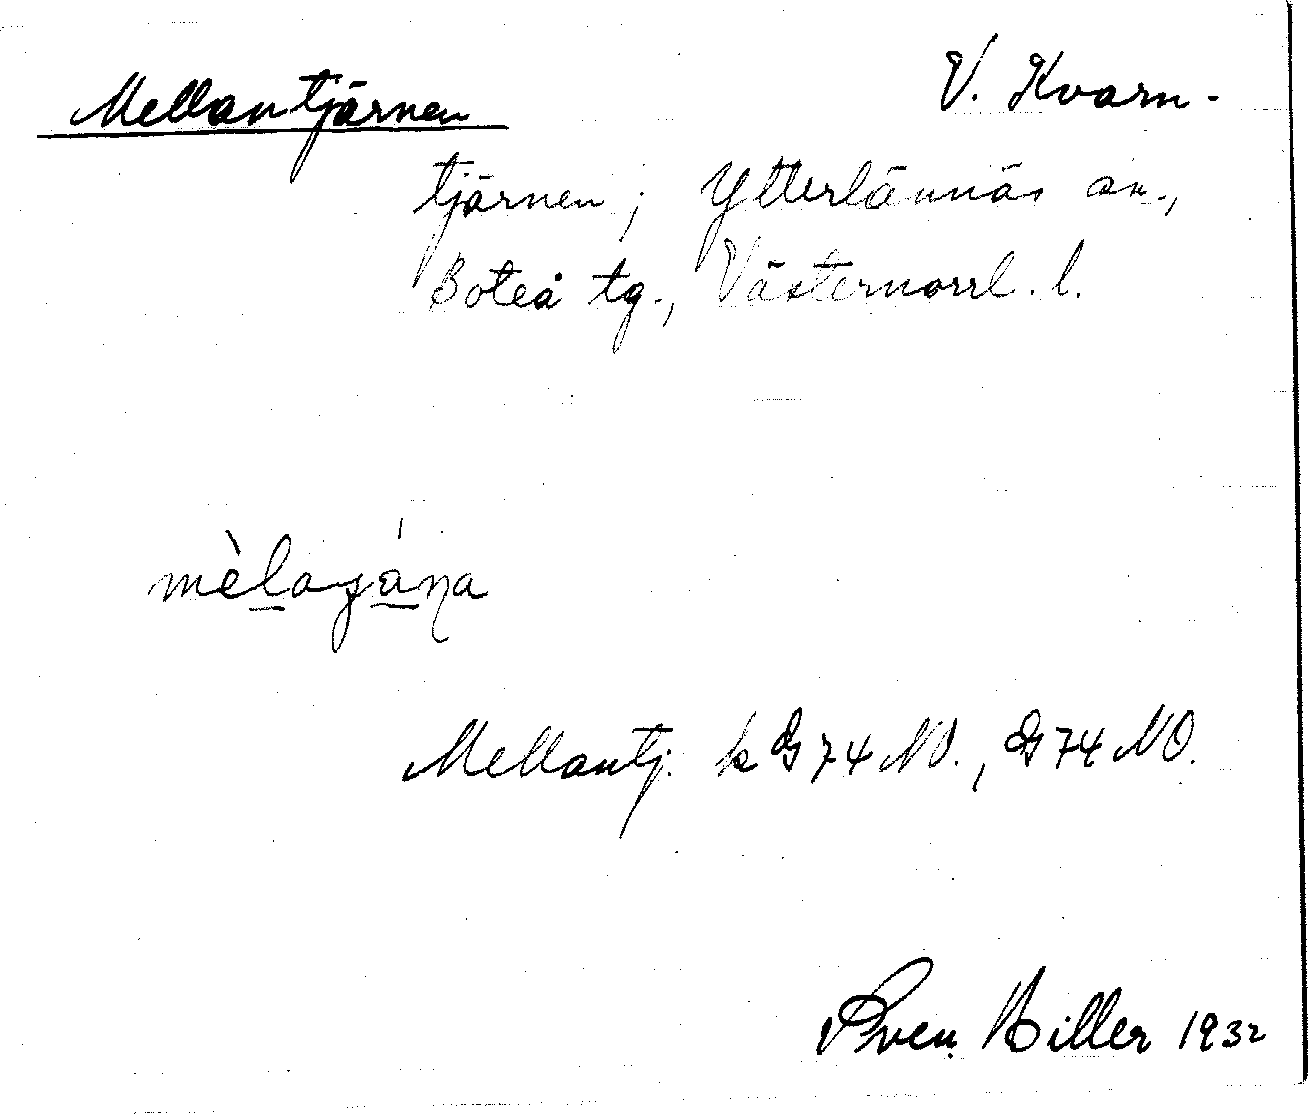 Mellantjärnen V. Kvarn-
tjärnen; Ytterlännäs sn.,
Boteå tg., Västernorrl. l.
Mellantj. k G 74 NO., G 74 NO.
Sven Hiller 1932